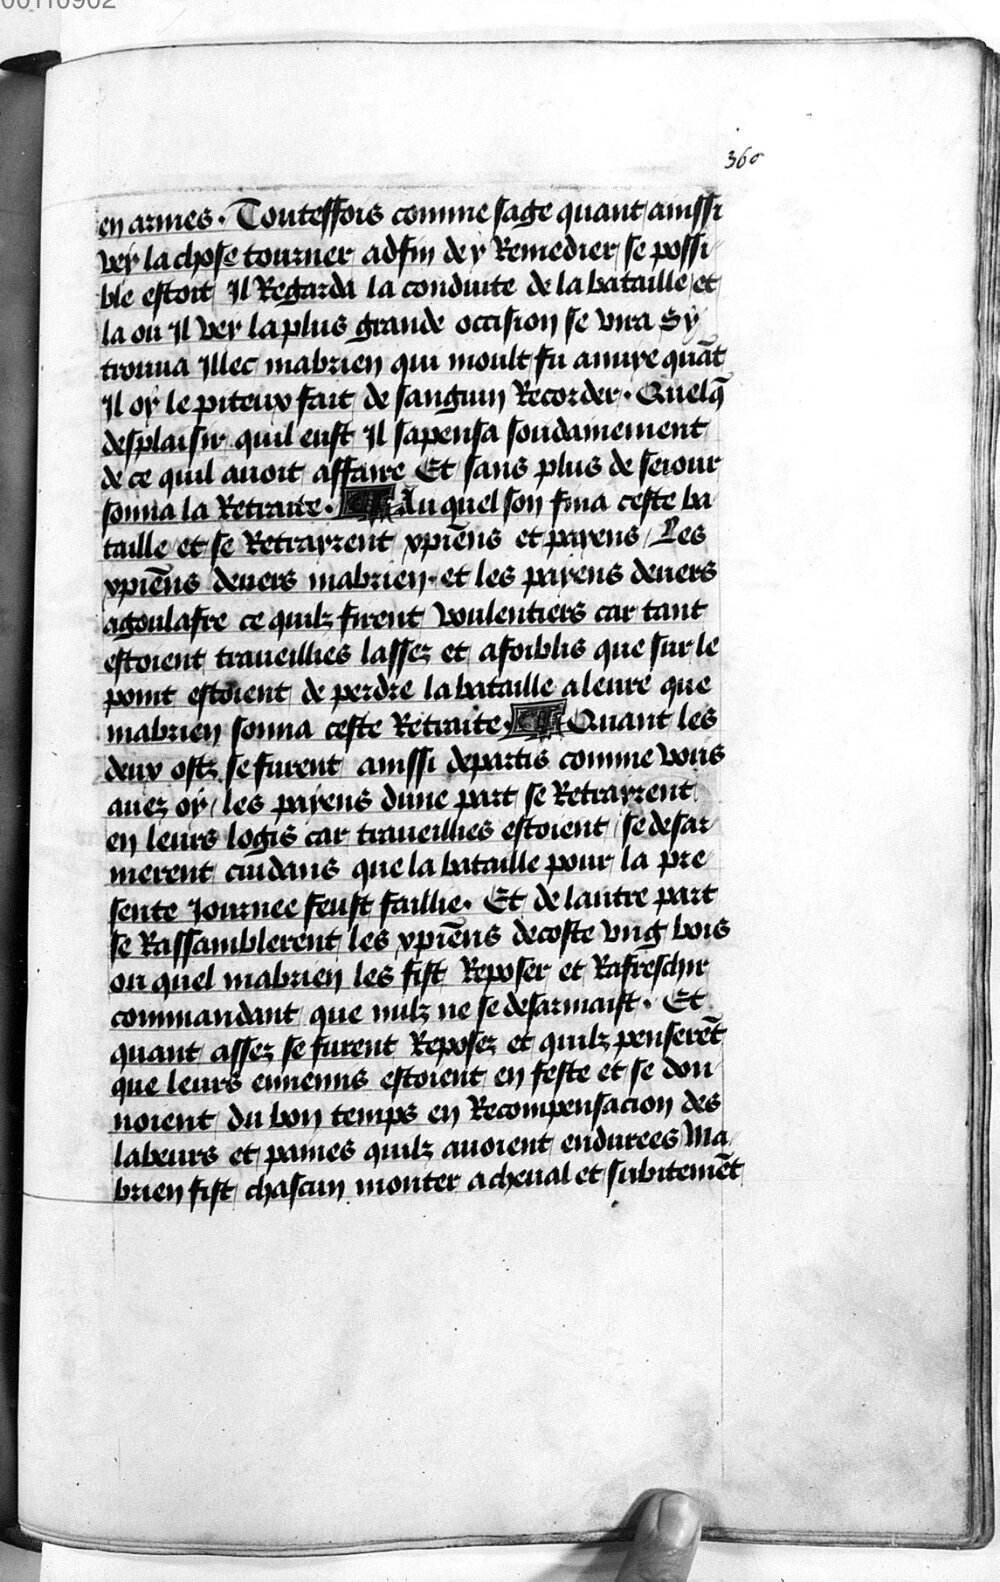 00110902
360
en armes. Touteffois comme sage quant ainssi
vey la chose tourner adfin de y Remedier se possi-
ble estoit Il Regarda la conduite de la bataille et
la ou Il vey la plus grande occision se vira Sy
trouua Illec mabrien qui moult fu anuye quāt
Il oy le piteux fait de sanguin Recorder. Quelq̄
desplaisir quil eust Il sapensa soudainement
de ce quil auoit affaire Et sans plus de seiour
sonna la Retraite. Au quel son fina ceste ba
taille et se Retrayrent xpiēns et payens / Les
xpiēns deuers mabrien. et les payens deuers
agoulafre ce quilz firent voulentiers car tant
estoient traueillies lassez et afoiblis que sur le
point estoient de perdre la bataille a leure que
mabrien sonna ceste Retraite. Quant les
deux ostz se furent ainssi departis comme vous
auez oy / les payens dune part se Retrayrent
en leurs logis car traueillies estoient se desar-
merent cuidans que la bataille pour la pre-
sente Journee feust faillie. Et de lautre part
se Rassamblerent les xpiēns decoste vng bois
ou quel mabrien les fist Reposer et Rafreschir
commandant que nulz ne se desarmaist. Et
quant assez se furent Reposez et quilz penserēt
que leurs ennemis estoient en feste et se don-
noient du bon temps en Recompensacion des
labeurs et paines quilz auoient endurees Ma-
brien fist chascun monter a cheual et subitemēt